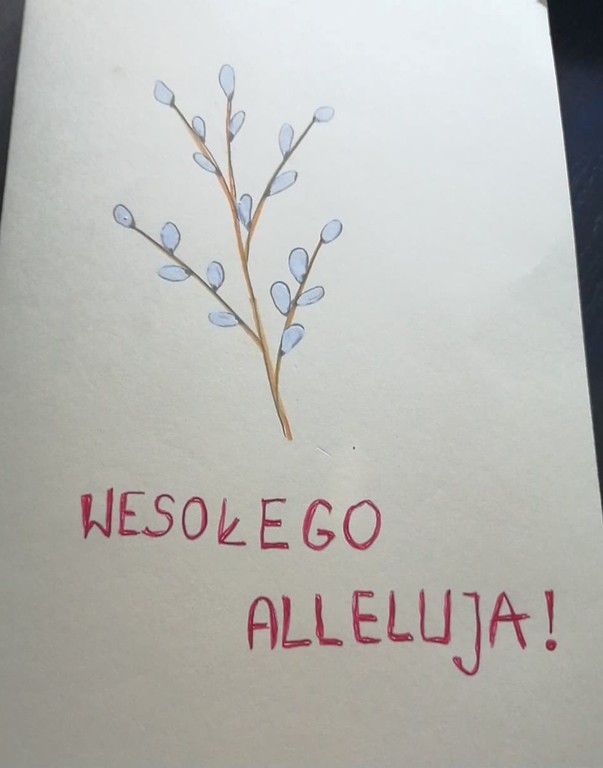 WESOŁEGO
ALLELUJA!